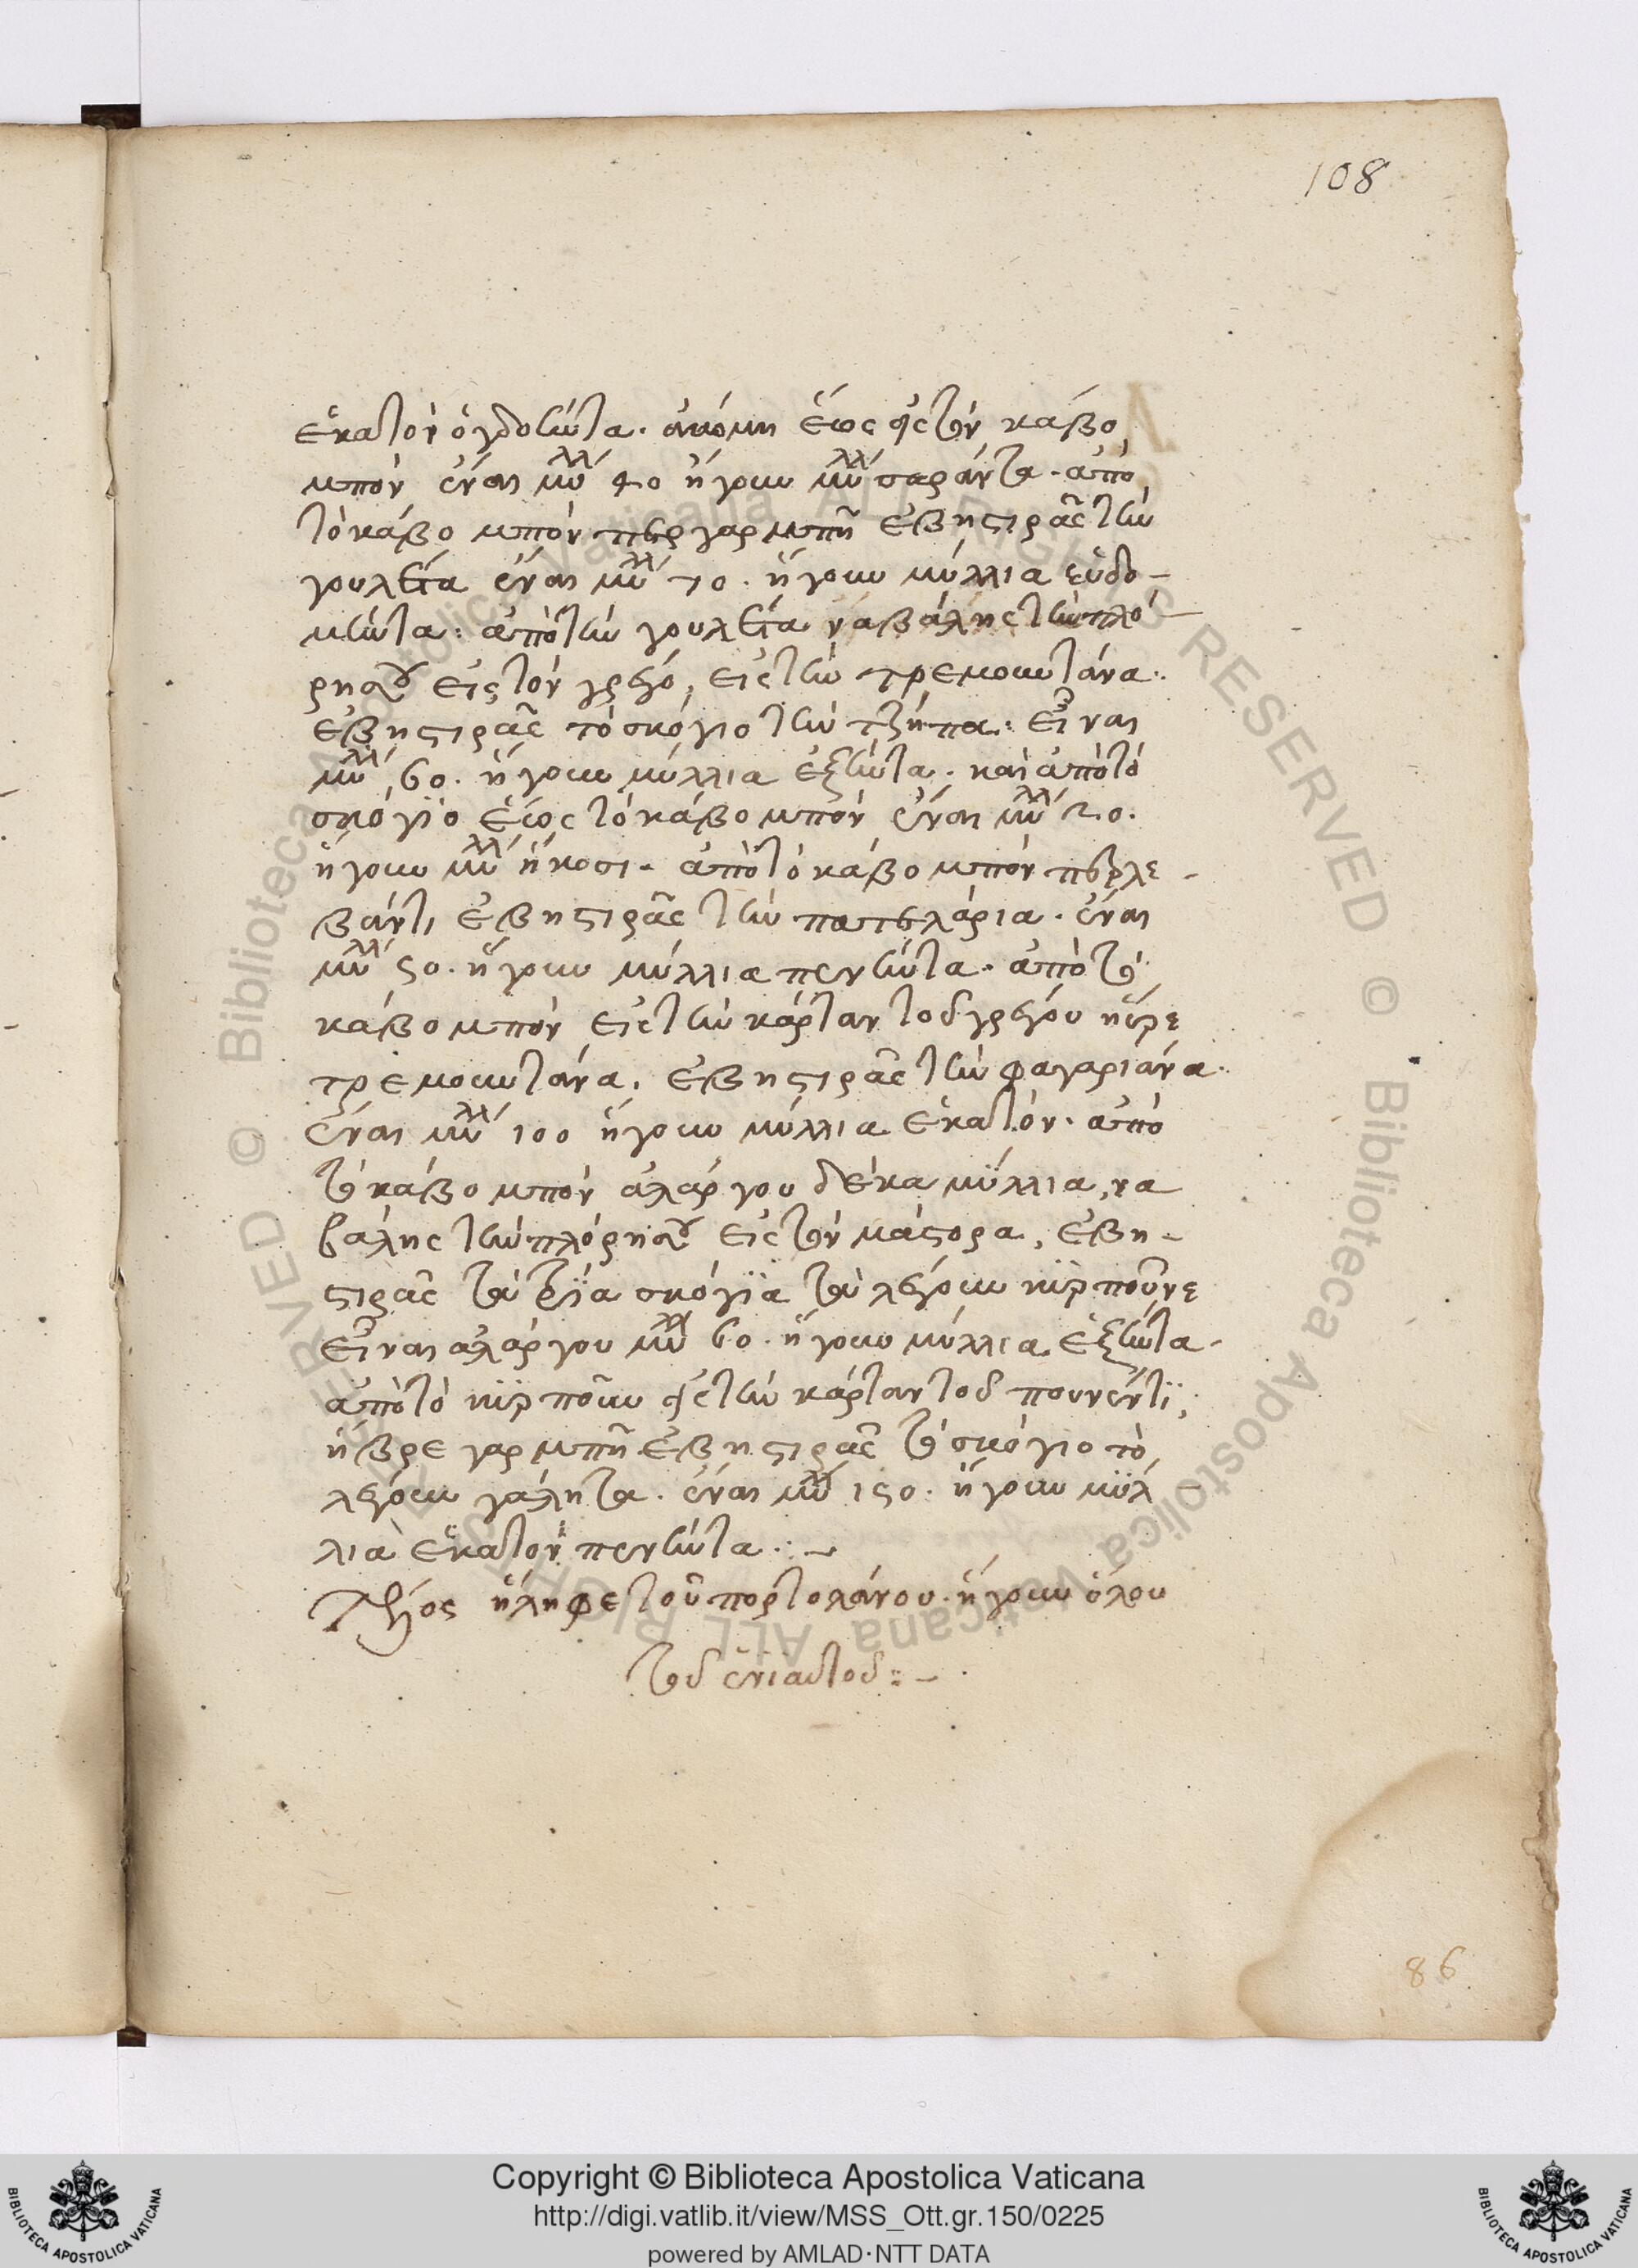 108
ἑκατὸν ὀγδοῶντα. ἀκόμη ἕως εἰς τὸν κάβο
μπὸν ἔναι μύλλ 40 ἤγουν μύλλ σαράντα. ἀπὸ
τὸ κάβο μπὸν περ γαρμπῆ ἐβηστιρᾶς τὴν
γουλέτα ἔναι μύλλ 70. ἤγουν μύλλια εὑδο-
μῶντα: ἀπὸ τὴν γουλέτα νὰ βάλης τὴν πλό-
ρη σου εἰς τὸν γρέγο, εἰς τὴν τρεμουντάνα.
ἐβηστιρᾶς τὸ σκόγιο τὴν τζήπα: εἶναι
μύλλ 60. ἤγουν μύλλια ἑξῶντα. καὶ ἀπὸ τὸ
σκόγιο ἕως τὸ κάβο μπὸν ἔναι μύλλ 20.
ἤγουν μύλλ ἤκοσι. ἀπὸ τὸ κάβο μπὸν περ λε-
βάντι ἐβηστιρᾶς τὴν παντελάρια. ἔναι
μύλλ 50. ἤγουν μύλλια πενῶντα. ἀπὸ τὸ
κάβο μπὸν εἰς τὴν κάρταν τοῦ γρέγου ἤβρε
τρεμουντάνα. ἐβηστιρᾶς τὴν φαγαριάνα.
ἔναι μύλλ 100 ἤγουν μύλλια ἑκατόν. ἀπὸ
τὸ κάβο μπὸν ἀλάργου δέκα μύλλια, να
βάλης τὴν πλόρη σου εἰς τὸν μάστορα, ἐβη-
στιρᾶς τὰ τρία σκόγια τὰ λέγουν κὺρ ποῦνε
εἶναι ἀλάργου μύλλ 60. ἤγουν μύλλια ἑξῶντα.
ἀπὸ τὸ κὺρ ποῦν εἰς τὴν κάρταν τοῦ πουνέντϊ,
ἤβρε γαρμπῆ ἐβηστιρᾶς τὸ σκόγιο τὸ
λέγουν γάλητα. ἔναι μύλλ 150. ἤγουν μύλ-
λια ἑκατὸν πενῶντα. :~
Τέλος ἤληφε τοῦ πορτολάνου. ἤγουν ὅλου
τοῦ ἐνιαυτοῦ: -
86
Copyright © Biblioteca Apostolica Vaticana
http://digi.vatlib.it/view/MSS_Ott.gr.150/0225
powered by AMLAD·NTT DATA